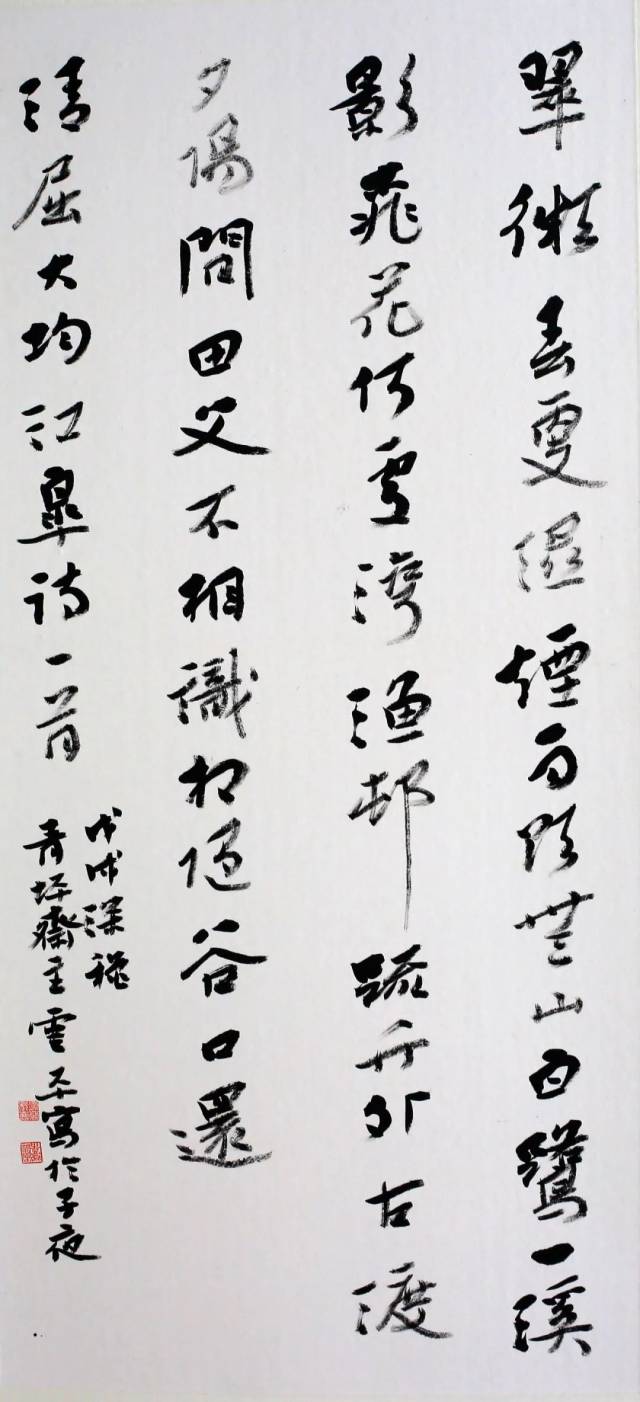 翠微春更濕煙雨欲無山白鷺一溪
影桃花何處灣漁邨疏竹外古渡
夕陽間田父不相識相隨谷口還
清屈大均江皋詩一首
戊戌深秋
青坪齋主雲平寫於子夜